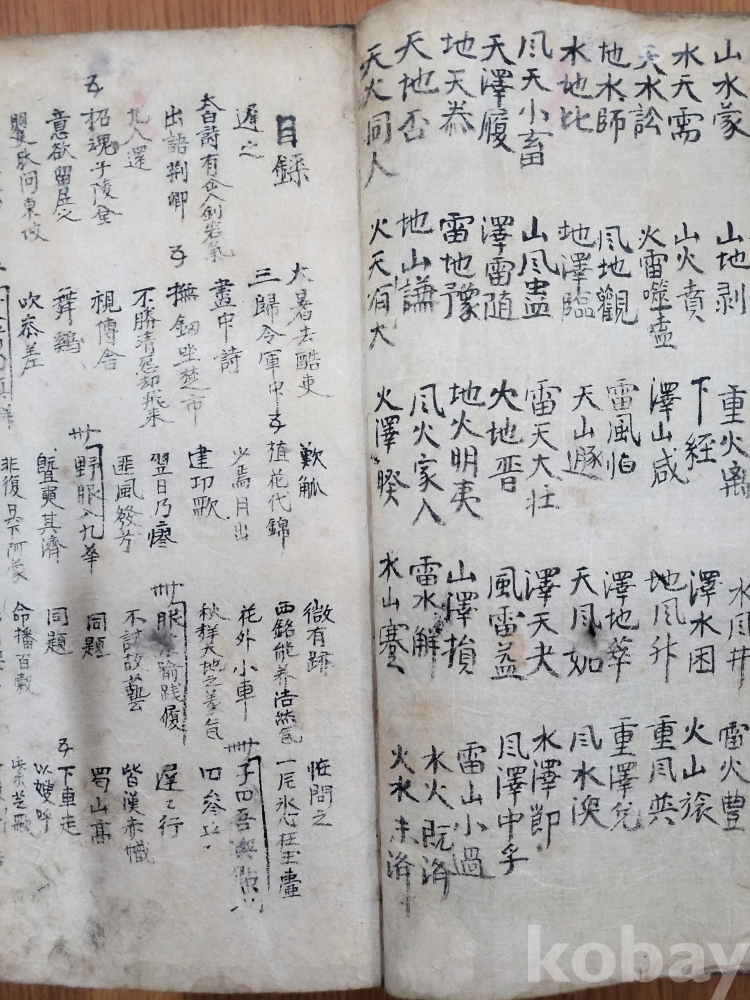 山水蒙
水天需
天水訟
地水師
水地比
风天小畜
天澤履
地天泰
天地否
天火同人
山地剥
山火賁
火雷噬嗑
风地觀
地澤臨
山风蛊
澤雷随
雷地豫
地山謙
火天有大
重火离
下経
澤山咸
雷風怕
天山遯
雷天大壮
火地晋
地火明夷
风火家人
火澤睽
水风井
澤水困
地风升
澤地萃
天风姤
澤天夬
風雷益
山澤損
雷水解
水山蹇
雷火豊
火山旅
重风巽
重澤兌
风水渙
水澤節
风澤中孚
雷山小過
水火既済
火水未済
目錄
遲之
太白詩有金人剑宕氣
出語荆卿
九人還
招魂子陵
意欲留
問東坡
大暑去酷吏
三歸令軍中
畫中詩
撫釼坐楚市
不勝清忌却飛来
視傳舍
舞鷄
吹参差
歎觚
植花代錦
少焉月出
建功歌
翌日乃瘳
匪風發兮
野服入九華
曁更其濟
非復吴下阿蒙
微有跡
西銘能养浩然氣
花外小車
秋䒳天地之
服
不試故藝
同題
同題
命播百穀
恠問之
一片氷心在玉壷
子四吾與點
四参
遲遲行
皆漢赤幟
蜀山高
下車走
以嫂呼
紫芝歌